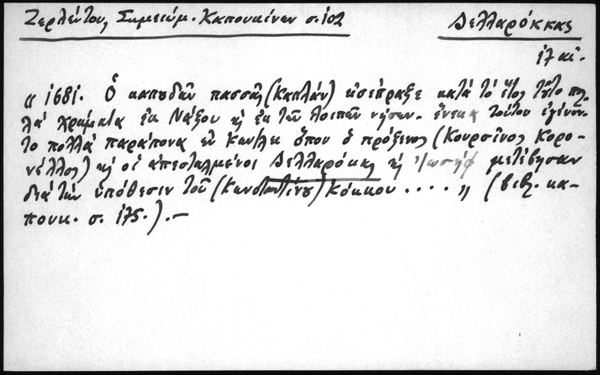 Ζερλέντου, Σημειώμ. Καπουκίνων σ. 102
Δελλαρόκκας
17 αἰ.
" 1681. Ὁ καπουδὰν πασσᾶς (Καπλὰν) εἰσέπραξε κατὰ τὸ ἔτος τοῦτο πολ-
λὰ χρήματα ἐκ Νάξου καὶ ἐκ τῶν λοιπῶν νήσων. ἕνεκα τούτου ἐγένον-
το πολλὰ παράπονα ἐν Κων/λει ὅπου ὁ πρόξενος (Κουρσῖνος Κορο-
νέλλος) καὶ οἱ ἀπεσταλμένοι Δελλαρόκας καὶ Ἰωσὴφ μετέβησαν
διὰ τὴν ὑπόθεσιν τοῦ (Κωνσταντίνου) Κόκκου .... " (βιβ. κα-
πουκ. σ. 175.). —